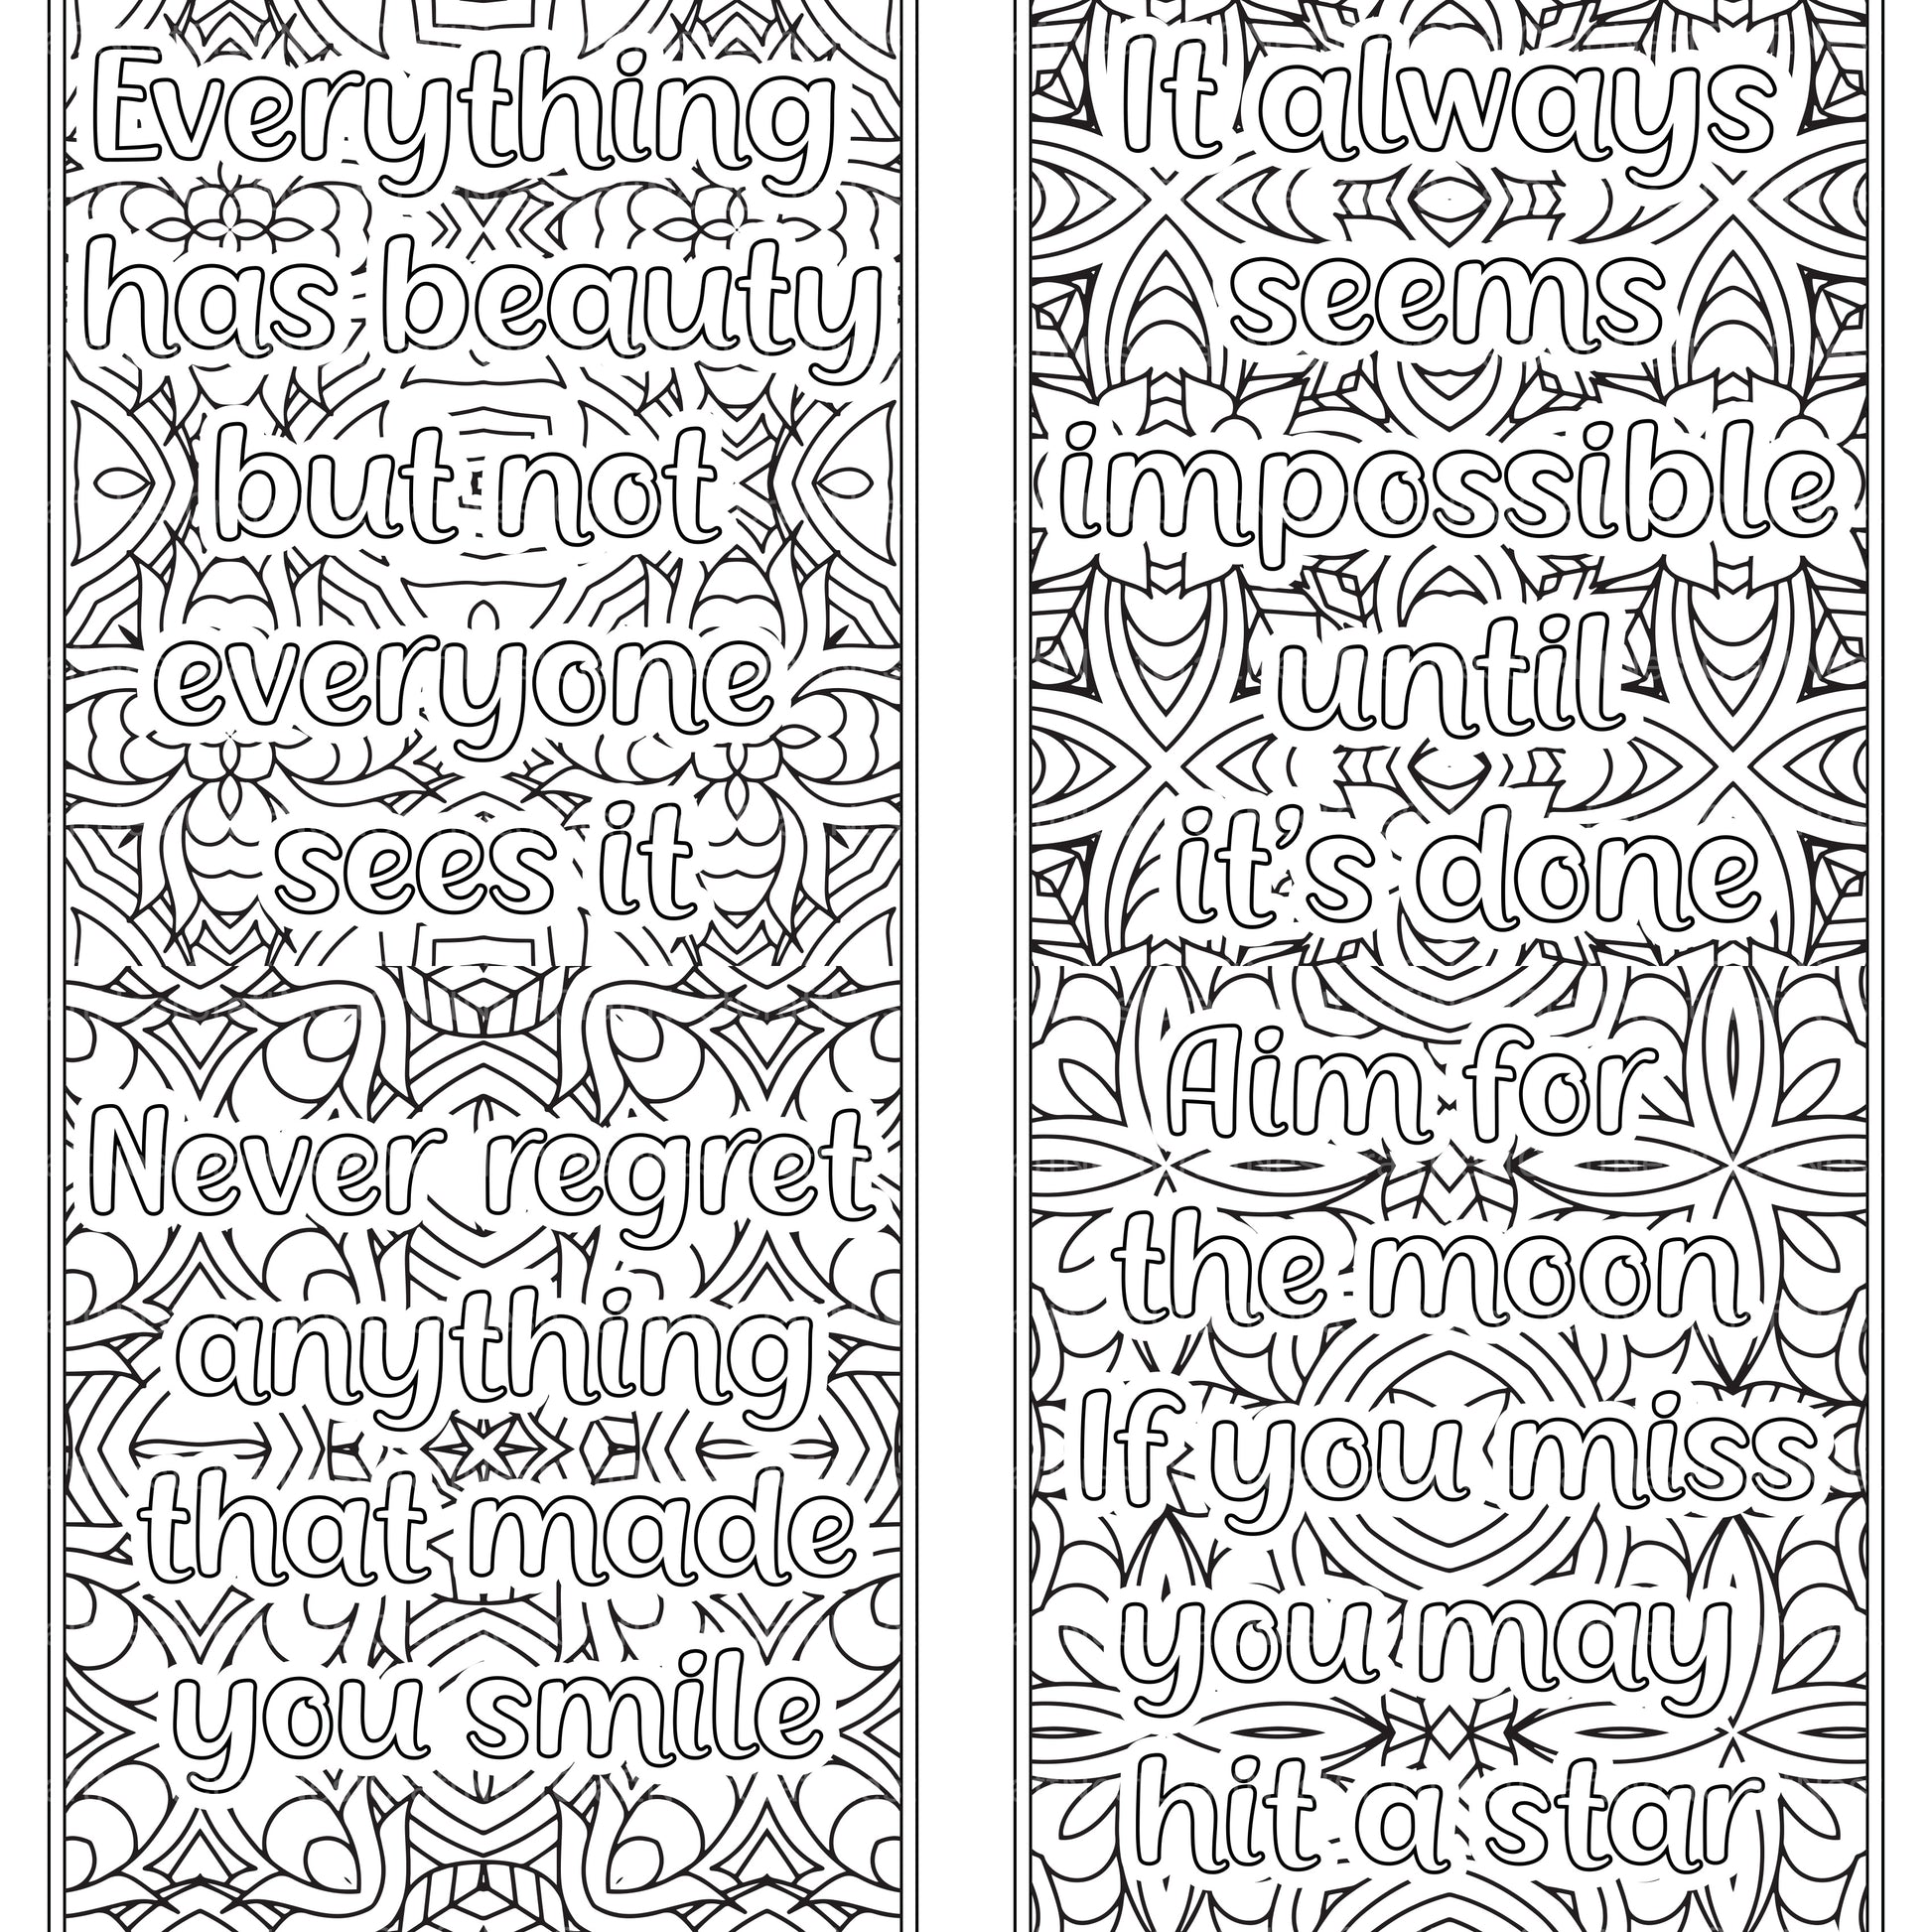 Everything
has beauty
but not
everyone
sees it
It always
seems
impossible
until
it’s done
Never regret
anything
that made
you smile
Aim for
the moon
If you miss
you may
hit a star